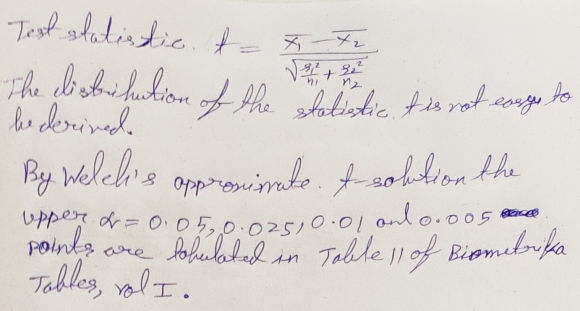 Test statistic. t = (x̄₁ − x̄₂) / √(s₁²/n₁ + s₂²/n₂)
The distribution of the statistic t is not easy to
be derived.
By Welch's approximate t-solution the
upper α = 0.05, 0.025, 0.01 and 0.005
points are tabulated in Table 11 of Biometrika
Tables, vol I.